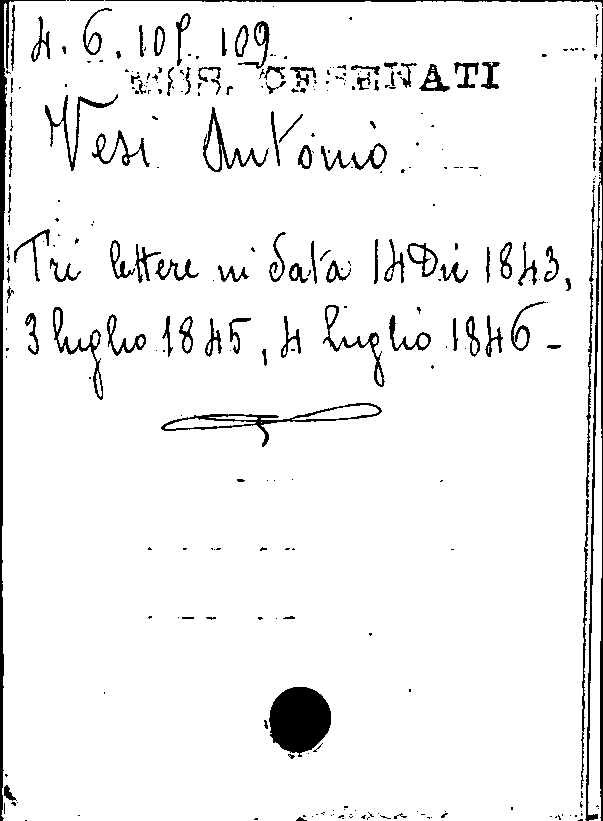 4. 6. 10 P. 109
MSS. CESENATI
Vesi Antonio.
Tre lettere in data 14 Dic 1843,
3 luglio 1845, 4 luglio 1846 -